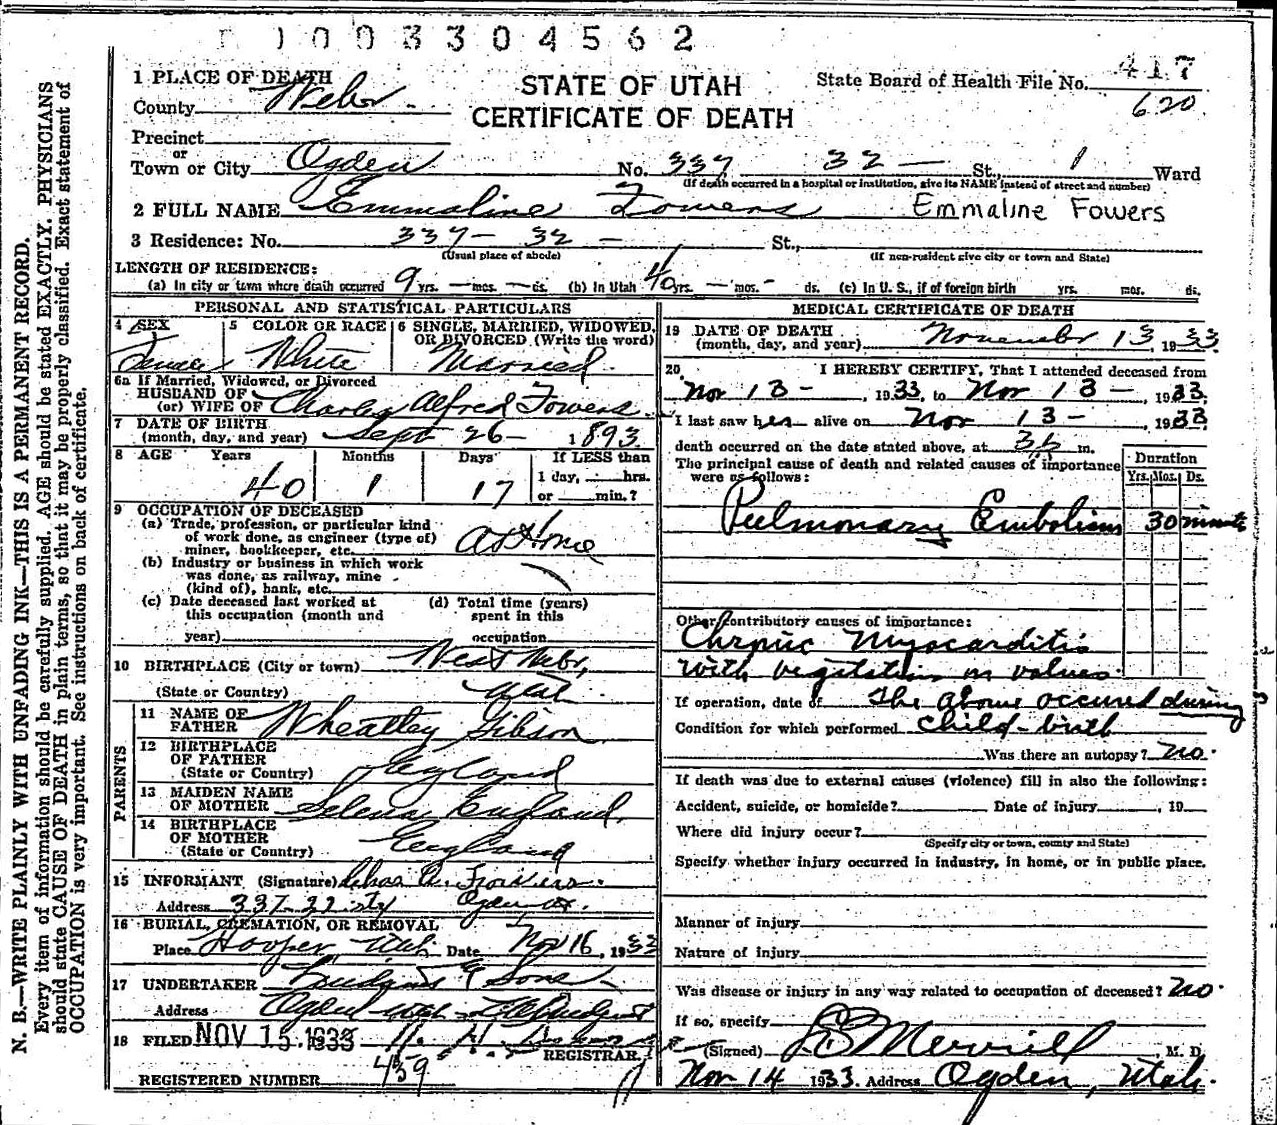 1003304562
1 PLACE OF DEATH
STATE OF UTAH
CERTIFICATE OF DEATH
State Board of Health File No. 417
620
County Weber
Precinct
or
Town or City Ogden No. 337 32 — St., 1 Ward
(If death occurred in a hospital or institution, give its NAME instead of street and number)
2 FULL NAME Emmaline Fowers Emmaline Fowers
3 Residence: No. 337 — 32 — St.,
(Usual place of abode) (If non-resident give city or town and State)
LENGTH OF RESIDENCE:
(a) In city or town where death occurred 9 yrs. — mos. — ds. (b) In Utah 40 yrs. — mos. - ds. (c) In U. S., if of foreign birth yrs. mos. ds.
PERSONAL AND STATISTICAL PARTICULARS
4 SEX Female
5 COLOR OR RACE White
6 SINGLE, MARRIED, WIDOWED, OR DIVORCED (Write the word) Married
6a If Married, Widowed, or Divorced
HUSBAND OF
(or) WIFE OF Charles Alfred Fowers
7 DATE OF BIRTH
(month, day, and year) Sept 26 — 1893
8 AGE Years Months Days If LESS than
40 1 17 1 day, hrs.
or min.?
9 OCCUPATION OF DECEASED
(a) Trade, profession, or particular kind
of work done, as engineer (type of)
miner, bookkeeper, etc. At Home
(b) Industry or business in which work
was done, as railway, mine
(kind of), bank, etc.
(c) Date deceased last worked at
this occupation (month and
year)
(d) Total time (years)
spent in this
occupation
10 BIRTHPLACE (City or town) West Weber,
(State or Country) Utah
PARENTS
11 NAME OF
FATHER Wheatley Gibson
12 BIRTHPLACE
OF FATHER
(State or Country) England
13 MAIDEN NAME
OF MOTHER Selena England
14 BIRTHPLACE
OF MOTHER
(State or Country) England
15 INFORMANT (Signature) Chas A. Fowers
Address 337 32 St Ogden Ut.
16 BURIAL, CREMATION, OR REMOVAL
Place Hooper Utah Date Nov 16, 1933
17 UNDERTAKER & Sons
Address Ogden Utah
18 FILED NOV 15 1933 H.
REGISTRAR.
REGISTERED NUMBER 459
MEDICAL CERTIFICATE OF DEATH
19 DATE OF DEATH
(month, day, and year) November 13, 1933
20 I HEREBY CERTIFY, That I attended deceased from
Nov 13 —, 1933, to Nov 13 —, 1933.
I last saw her alive on Nov 13 — 1933
death occurred on the date stated above, at m.
The principal cause of death and related causes of importance
were as follows:
Duration
Yrs. Mos. Ds.
Pulmonary Embolism 30 minute
Other contributory causes of importance:
Chronic Myocarditis
with vegitations on valves.
If operation, date of The above occured during
Condition for which performed child-birth
Was there an autopsy? no.
If death was due to external causes (violence) fill in also the following:
Accident, suicide, or homicide? Date of injury , 19
Where did injury occur?
(Specify city or town, county and State)
Specify whether injury occurred in industry, in home, or in public place.
Manner of injury
Nature of injury
Was disease or injury in any way related to occupation of deceased? no.
If so, specify
(Signed) Merrill, M. D.
Nov 14 1933. Address Ogden, Utah.
N. B.—WRITE PLAINLY WITH UNFADING INK—THIS IS A PERMANENT RECORD.
Every item of information should be carefully supplied. AGE should be stated EXACTLY. PHYSICIANS
should state CAUSE OF DEATH in plain terms, so that it may be properly classified. Exact statement of
OCCUPATION is very important. See instructions on back of certificate.